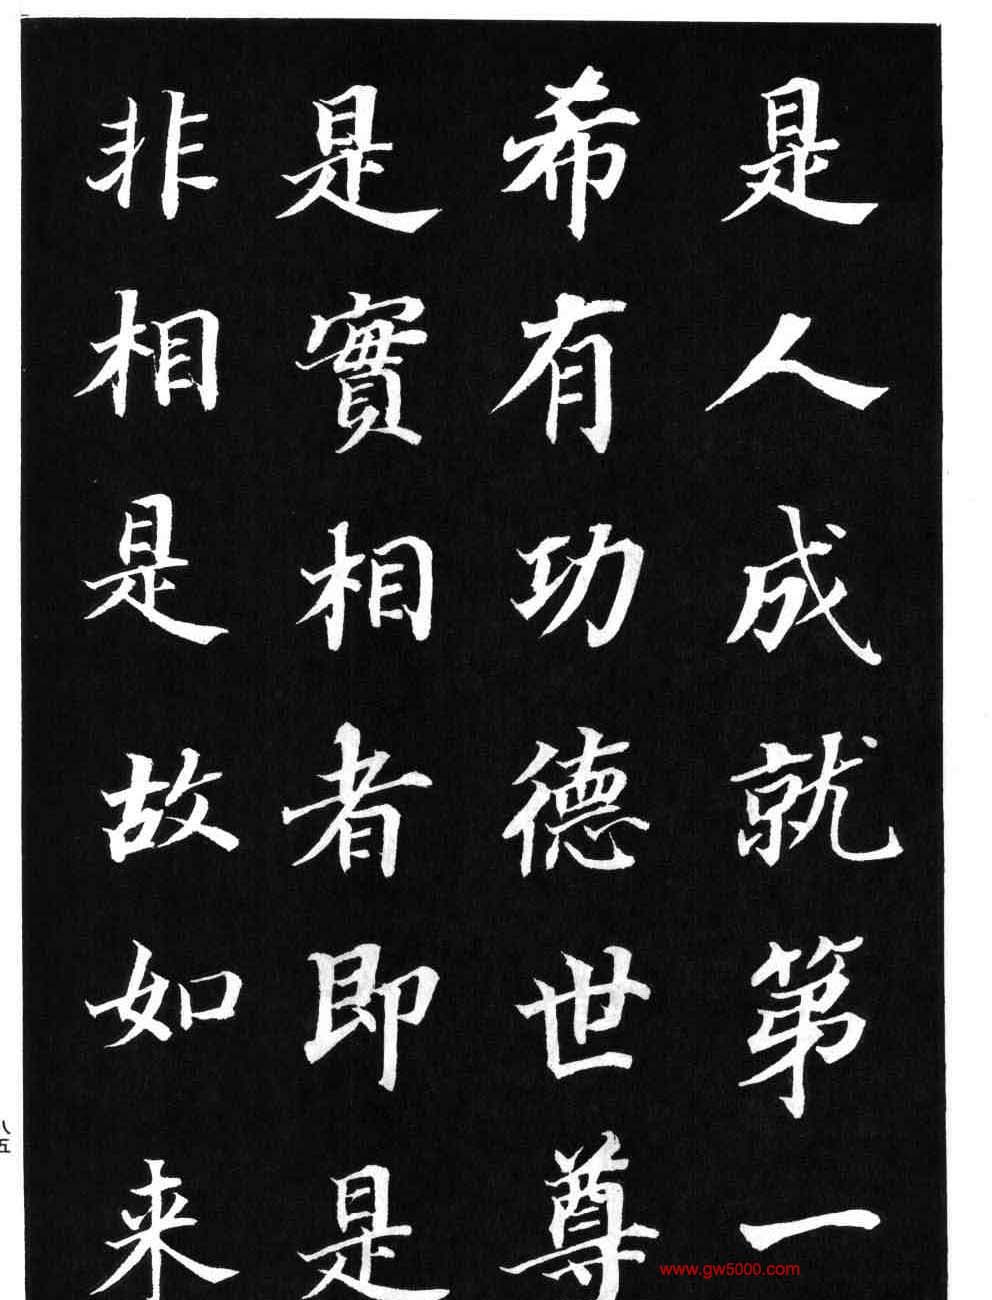 是人成就第一
希有功德世尊
是實相者即是
非相是故如来
八五
www.gw5000.com